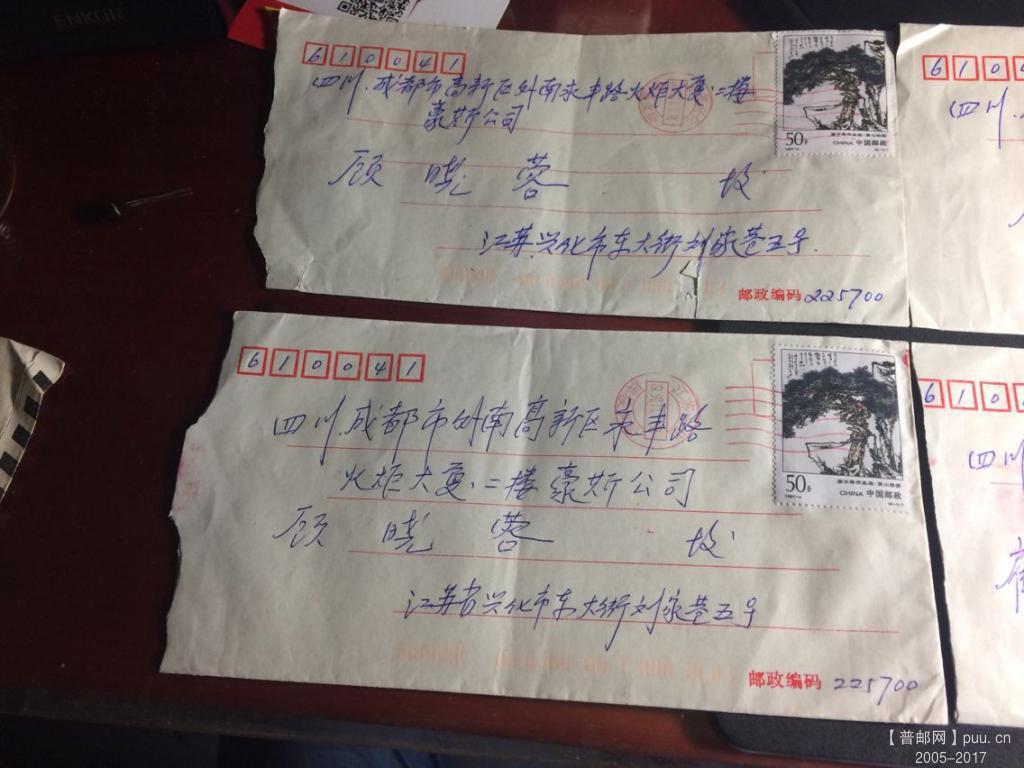 ENKOR
610041
四川.成都市高新区外南永丰路火炬大厦.二楼
豪斯公司
顾晓蓉 收
江苏.兴化市东大街刘家巷五号.
邮政编码 225700
50分
CHINA 中国邮政
6104
四川.
610041
四川.成都市外南高新区永丰路
火炬大厦.二楼豪斯公司
顾晓蓉 收
江苏省兴化市东大街刘家巷五号
邮政编码 225700
50分
CHINA 中国邮政
610
四川
【普邮网】puu.cn
2005-2017